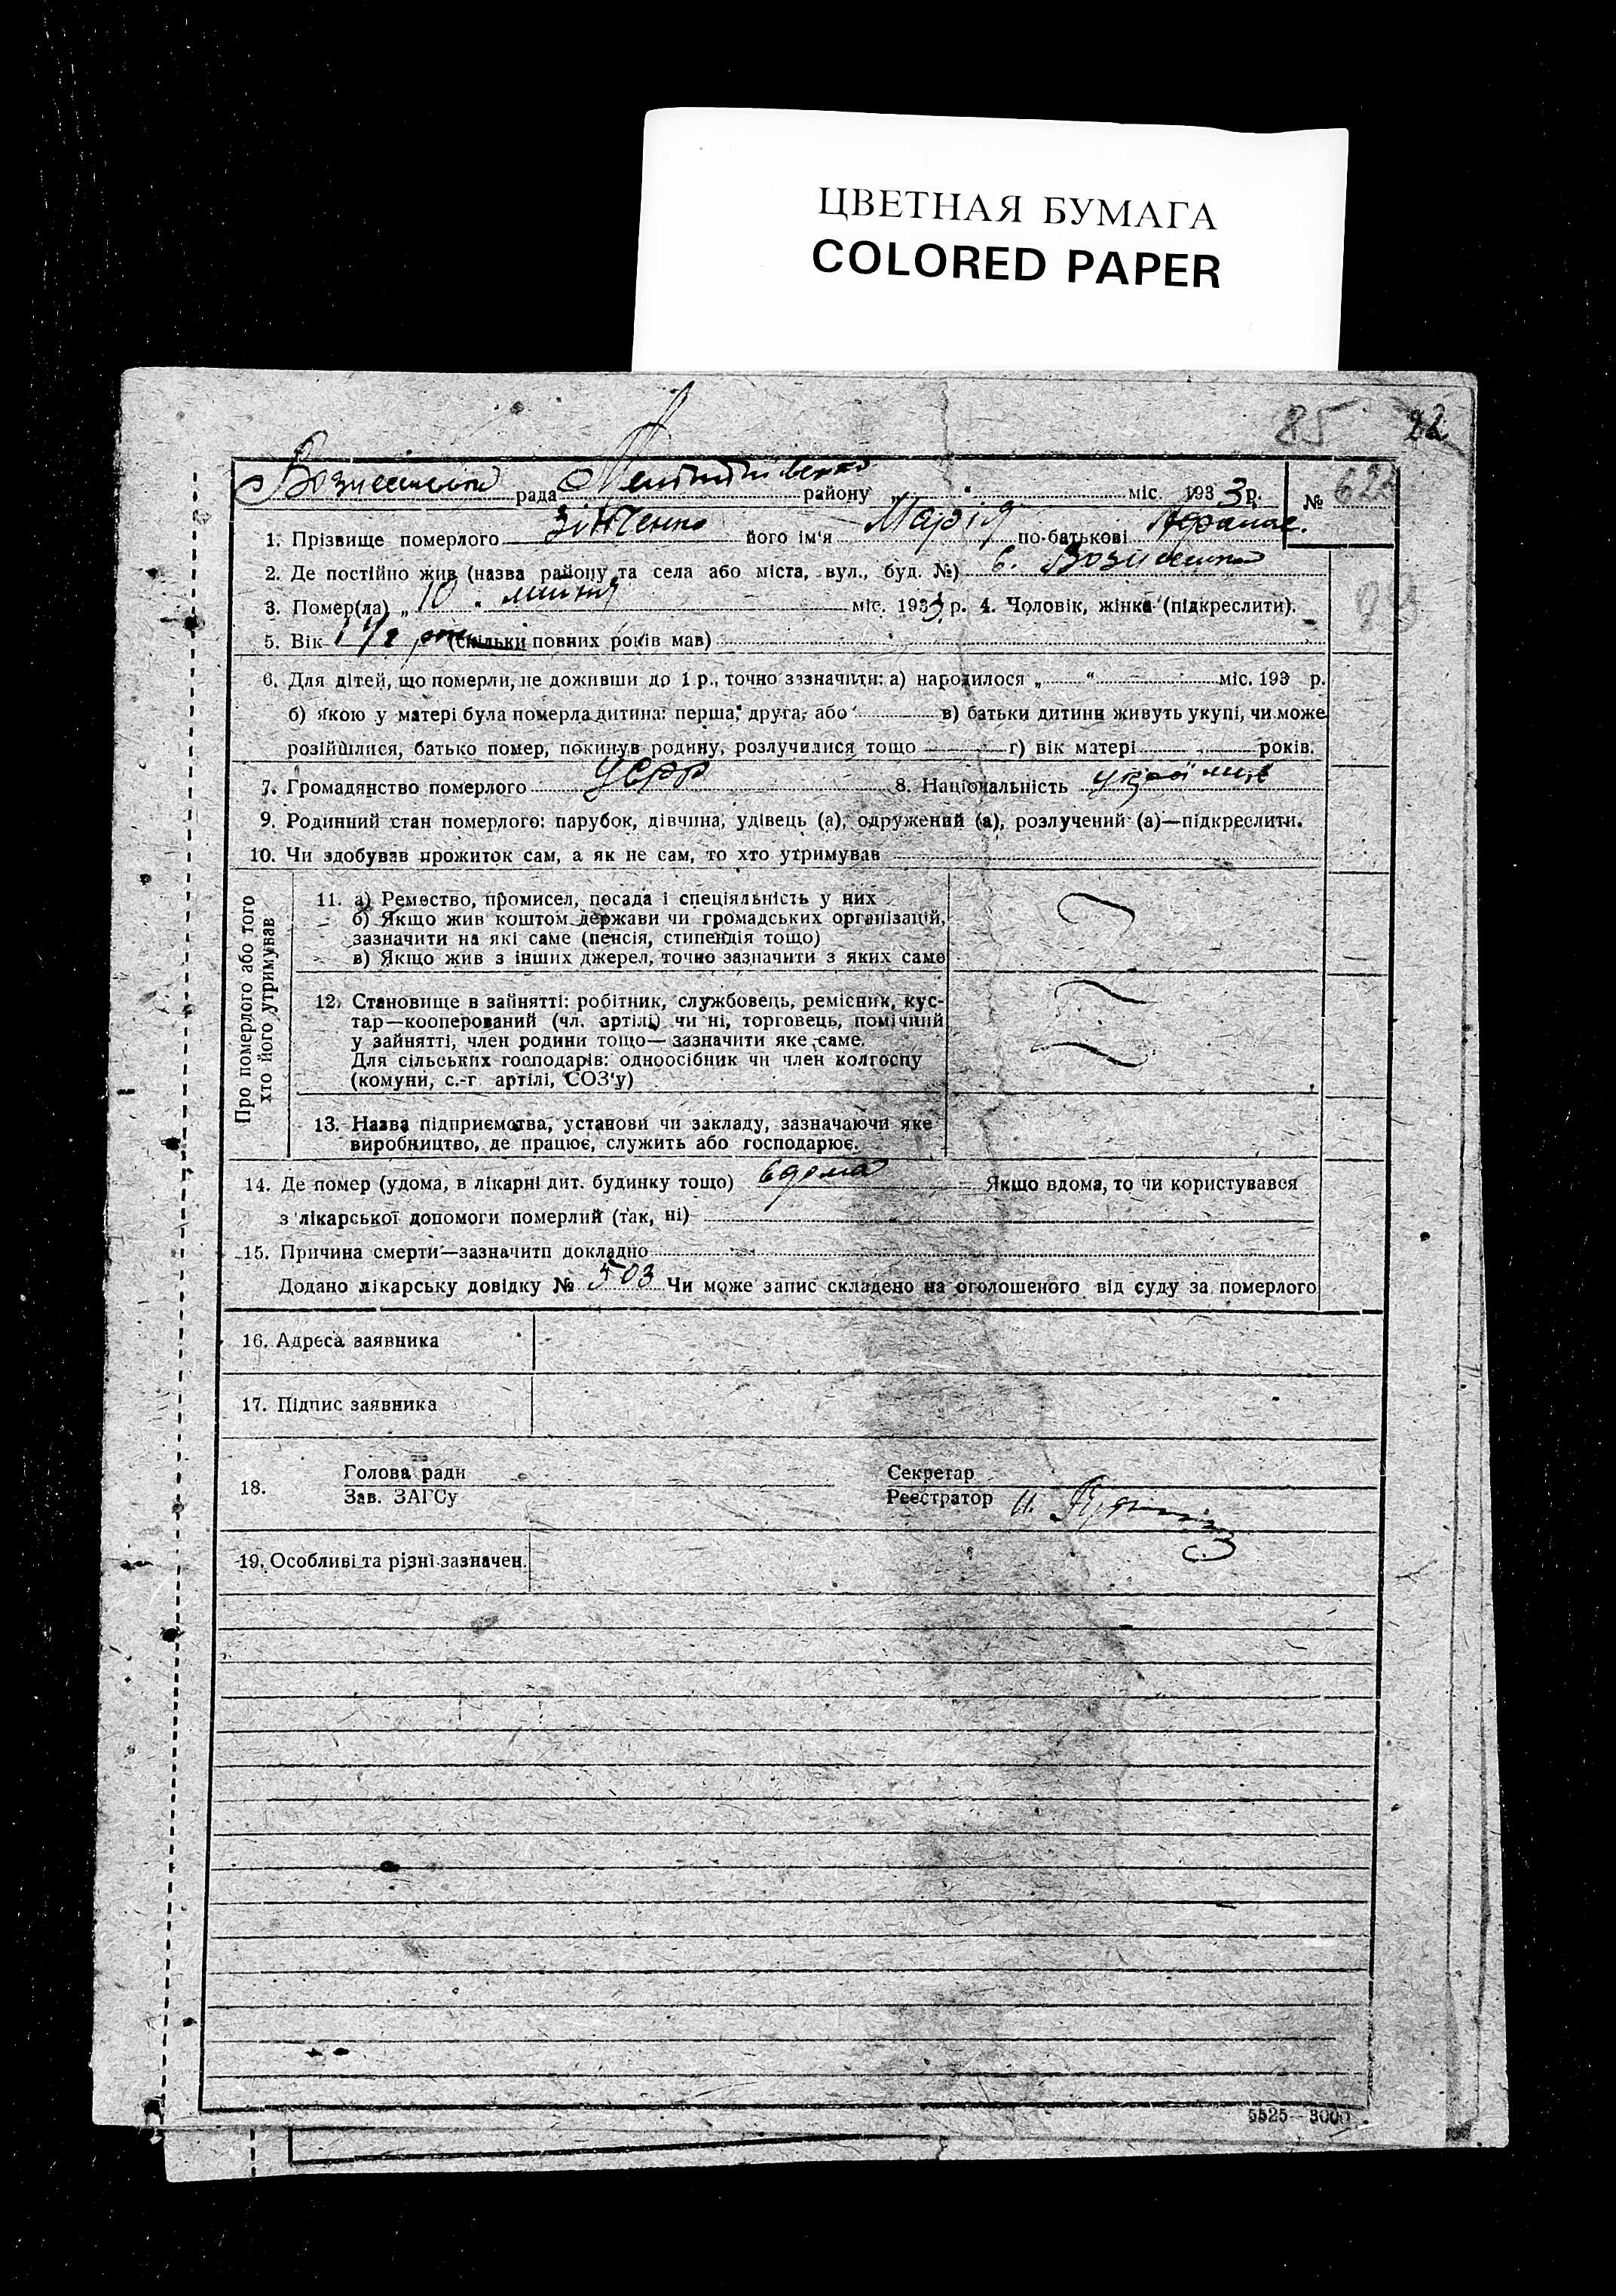 ЦВЕТНАЯ БУМАГА
COLORED PAPER
85 22
рада району „ “ міс. 1933 р. №
1. Прізвище померлого Зінченко його ім'я Марія по-батькові Афанас.
2. Де постійно жив (назва району та села або міста, вул., буд. №) с.
3. Помер(ла) „ 10 “ міс. 1933 р. 4. Чоловік, жінка (підкреслити).
5. Вік 1 1/2 (скільки повних років мав)
6. Для дітей, що померли, не доживши до 1 р., точно зазначити: а) народилося „ “ міс. 193 р.
б) якою у матері була померла дитина: перша, друга, або в) батьки дитини живуть укупі, чи може
розійшлися, батько помер, покинув родину, розлучилися тощо г) вік матері років.
7. Громадянство померлого УСРР 8. Національність
9. Родинний стан померлого: парубок, дівчина, удівець (а), одружений (а), розлучений (а)—підкреслити.
10. Чи здобував прожиток сам, а як не сам, то хто утримував
Про померлого або того
хто його утримував
11. а) Ремество, промисел, посада і спеціяльність у них
б) Якщо жив коштом держави чи громадських організацій,
зазначити на які саме (пенсія, стипендія тощо)
в) Якщо жив з інших джерел, точно зазначити з яких саме
12. Становище в зайнятті: робітник, службовець, ремісник, кус-
тар—кооперований (чл. артілі) чи ні, торговець, помічний
у зайнятті, член родини тощо—зазначити яке саме.
Для сільських господарів: одноосібник чи член колгоспу
(комуни, с.-г артілі, СОЗ'у)
13. Назва підприємства, установи чи закладу, зазначаючи яке
виробництво, де працює, служить або господарює.
14. Де помер (удома, в лікарні дит. будинку тощо) вдома Якщо вдома, то чи користувався
з лікарської допомоги померлий (так, ні)
15. Причина смерти—зазначити докладно
Додано лікарську довідку № 503 Чи може запис складено на оголошеного від суду за померлого
16. Адреса заявника
17. Підпис заявника
18. Голова ради Секретар
Зав. ЗАГСу Реєстратор
19. Особливі та різні зазначен.
5525—3000